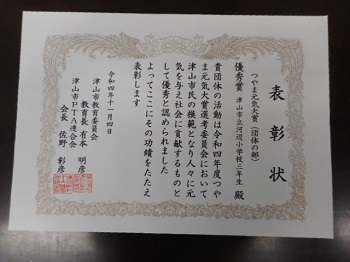 表彰状
つやま元気大賞(団体の部)
優秀賞 津山市立河辺小学校三年生 殿
貴団体の活動は令和四年度つや
ま元気大賞選考委員会において
津山市民の模範となり人々に元
気を与え社会に貢献するものと
して優秀と認められました
よってここにその功績をたたえ
表彰します
令和四年十一月四日
津山市教育委員会
教育長 有本 明彦
津山市PTA連合会
会長 佐野 彰彦